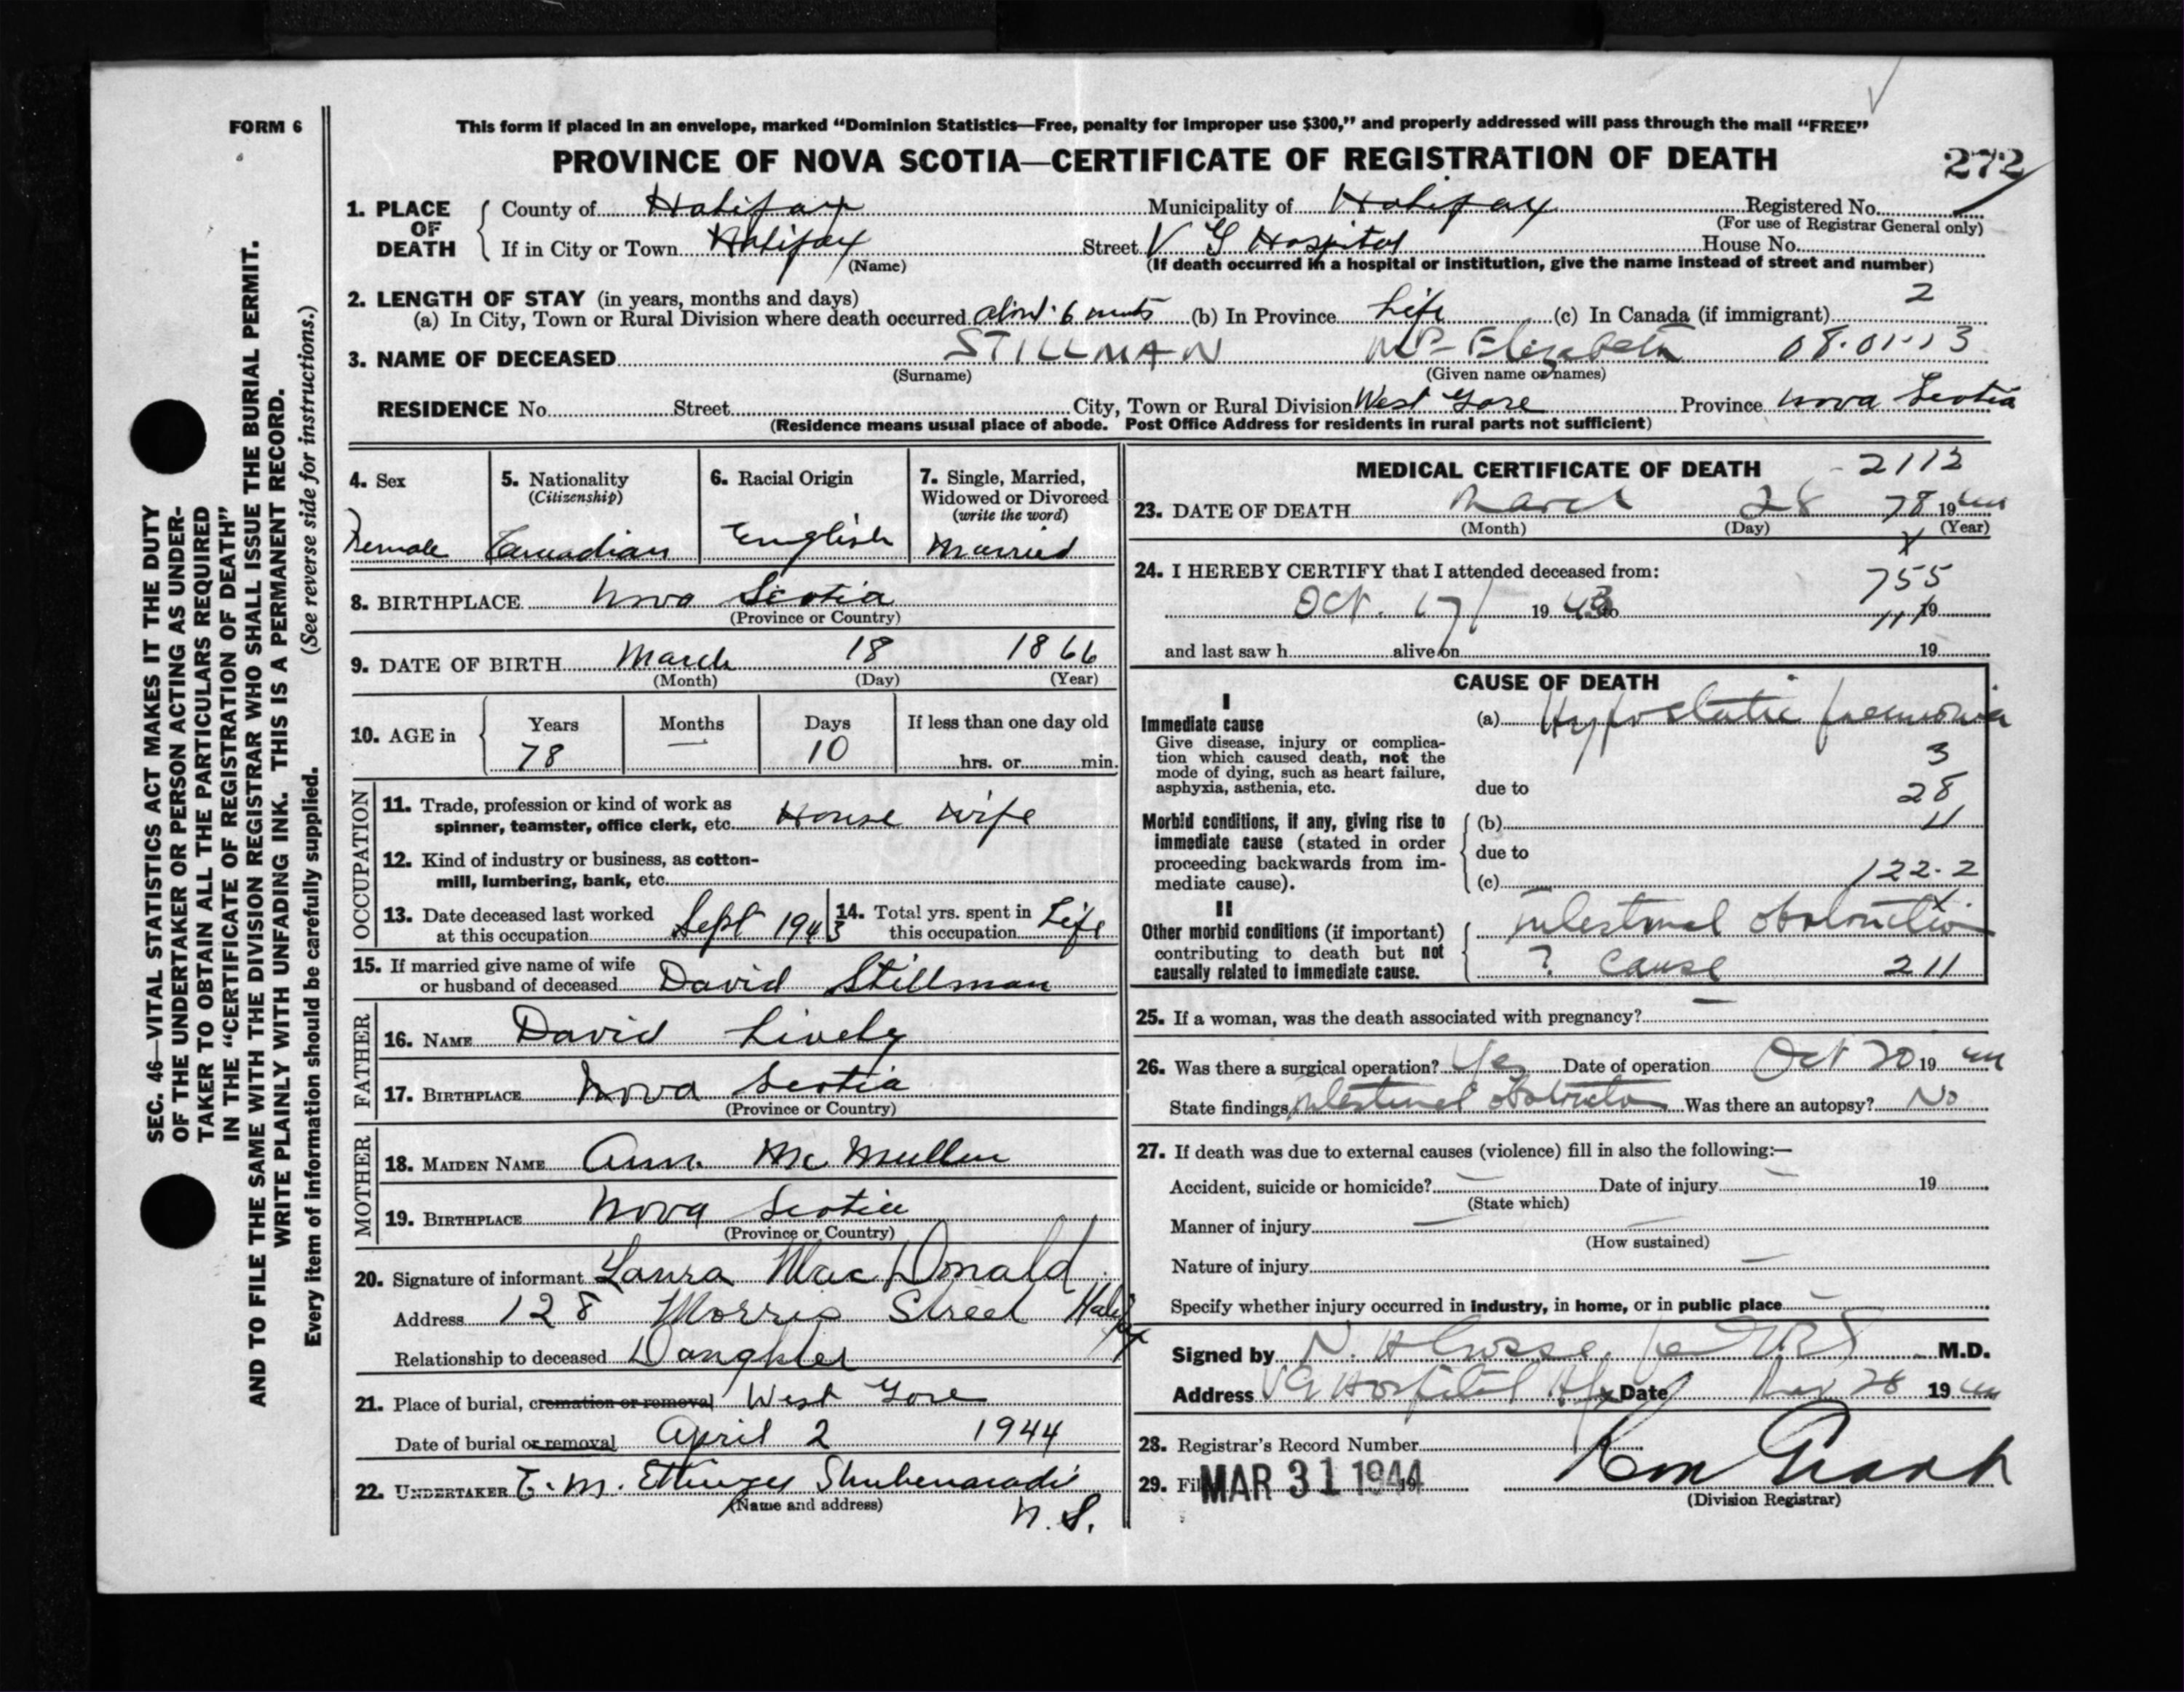 FORM 6
This form if placed in an envelope, marked “Dominion Statistics—Free, penalty for improper use $300,” and properly addressed will pass through the mail “FREE”
PROVINCE OF NOVA SCOTIA—CERTIFICATE OF REGISTRATION OF DEATH
272
1. PLACE OF DEATH
County of Halifax Municipality of Halifax Registered No.
(For use of Registrar General only)
If in City or Town Halifax Street V G Hospital House No.
(Name) (If death occurred in a hospital or institution, give the name instead of street and number)
2. LENGTH OF STAY (in years, months and days) 2
(a) In City, Town or Rural Division where death occurred 6 (b) In Province Life (c) In Canada (if immigrant)
3. NAME OF DECEASED STILLMAN Elizabeth 08.01.13
(Surname) (Given name or names)
RESIDENCE No. Street City, Town or Rural Division West Gore Province Nova Scotia
(Residence means usual place of abode. Post Office Address for residents in rural parts not sufficient)
4. Sex
Female
5. Nationality
(Citizenship)
Canadian
6. Racial Origin
English
7. Single, Married,
Widowed or Divorced
(write the word)
Married
8. BIRTHPLACE Nova Scotia
(Province or Country)
9. DATE OF BIRTH March 18 1866
(Month) (Day) (Year)
10. AGE in
Years Months Days If less than one day old
78 — 10 hrs. or min.
OCCUPATION
11. Trade, profession or kind of work as
spinner, teamster, office clerk, etc. House wife
12. Kind of industry or business, as cotton-
mill, lumbering, bank, etc.
13. Date deceased last worked
at this occupation Sept 1943
14. Total yrs. spent in
this occupation Life
15. If married give name of wife
or husband of deceased David Stillman
FATHER
16. NAME David Lively
17. BIRTHPLACE Nova Scotia
(Province or Country)
MOTHER
18. MAIDEN NAME Ann. McMullen
19. BIRTHPLACE Nova Scotia
(Province or Country)
20. Signature of informant Laura MacDonald
Address 128 Morris Street Halifax
Relationship to deceased Daughter
21. Place of burial, cremation or removal West Gore
Date of burial or removal April 2 1944
22. UNDERTAKER E. M. Ettinger Shubenacadie
(Name and address)
N. S.
MEDICAL CERTIFICATE OF DEATH - 2112
23. DATE OF DEATH March 28 78 1944
(Month) (Day) (Year)
x
24. I HEREBY CERTIFY that I attended deceased from:
755
Oct. 17 1943 to 19
11
and last saw h alive on 19
CAUSE OF DEATH
I
Immediate cause
Give disease, injury or complica-
tion which caused death, not the
mode of dying, such as heart failure,
asphyxia, asthenia, etc.
(a) Hypostatic pneumonia
3
due to
28
Morbid conditions, if any, giving rise to
immediate cause (stated in order
proceeding backwards from im-
mediate cause).
(b) 11
due to
(c) 122-2
x
II
Other morbid conditions (if important)
contributing to death but not
causally related to immediate cause.
Intestinal obstruction
? cause 211
25. If a woman, was the death associated with pregnancy? —
26. Was there a surgical operation? Yes Date of operation Oct 20 19
State findings Intestinal obstruction Was there an autopsy? No
27. If death was due to external causes (violence) fill in also the following:—
Accident, suicide or homicide? — Date of injury — 19
(State which)
Manner of injury —
(How sustained)
Nature of injury —
Specify whether injury occurred in industry, in home, or in public place —
Signed by N. H. Gosse M.D.
Address VG Hospital Hfx Date 28 1944
28. Registrar's Record Number
29. Filed MAR 31 1944 19
(Division Registrar)
SEC. 46—VITAL STATISTICS ACT MAKES IT THE DUTY
OF THE UNDERTAKER OR PERSON ACTING AS UNDER-
TAKER TO OBTAIN ALL THE PARTICULARS REQUIRED
IN THE “CERTIFICATE OF REGISTRATION OF DEATH”
AND TO FILE THE SAME WITH THE DIVISION REGISTRAR WHO SHALL ISSUE THE BURIAL PERMIT.
WRITE PLAINLY WITH UNFADING INK. THIS IS A PERMANENT RECORD.
Every item of information should be carefully supplied. (See reverse side for instructions.)